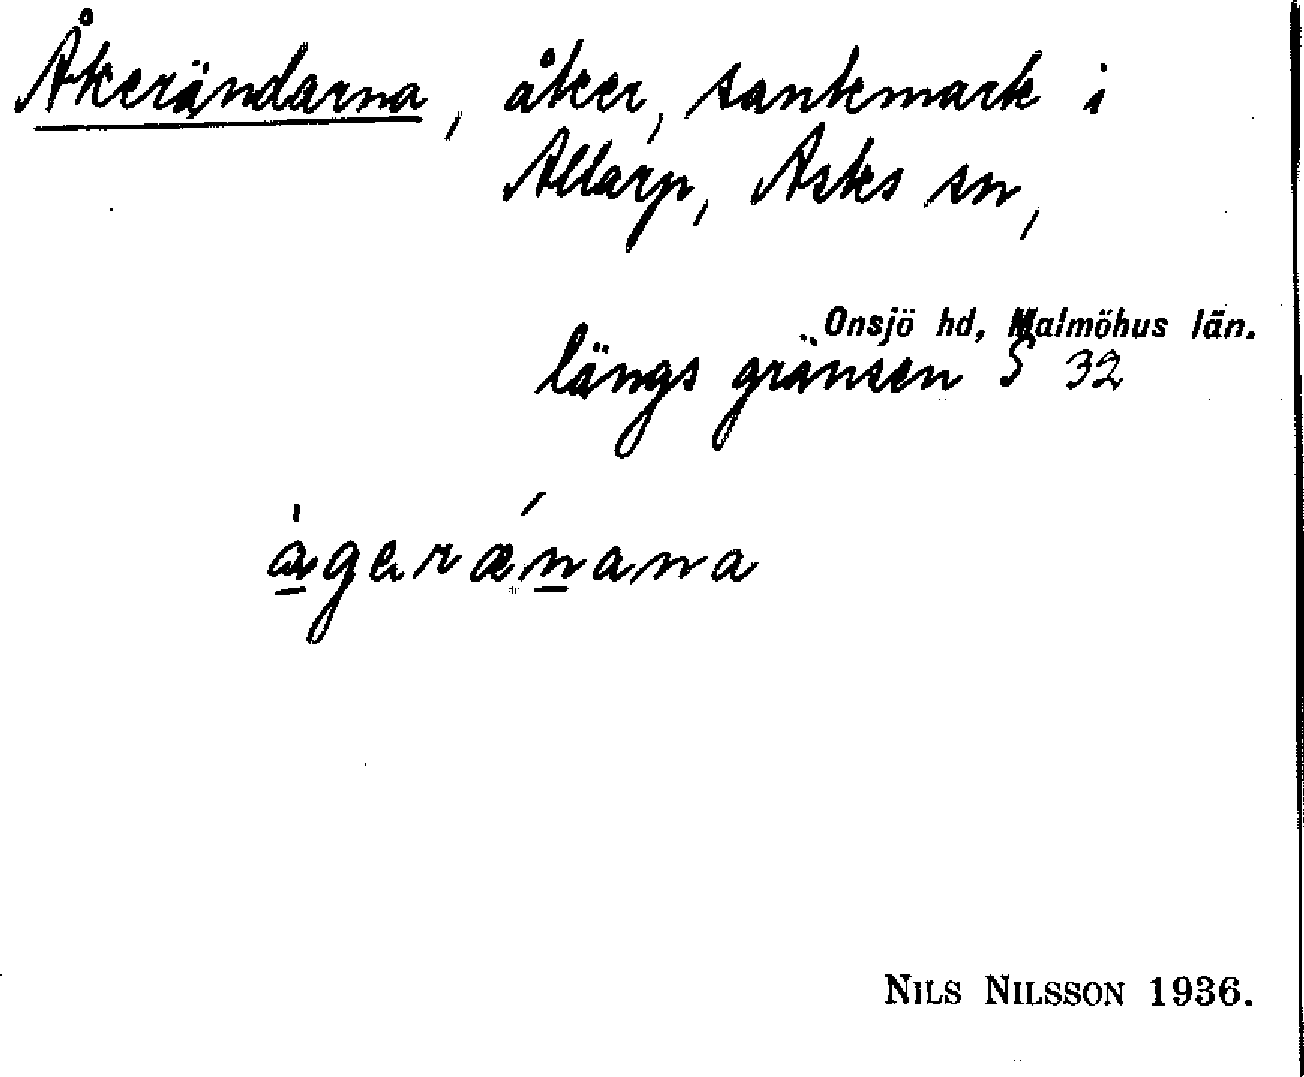 Åkerändarna, åker, sankmark i
Allarp, Asks sn,
Onsjö hd, Malmöhus län.
längs gränsen S 32
ågerænana
NILS NILSSON 1936.